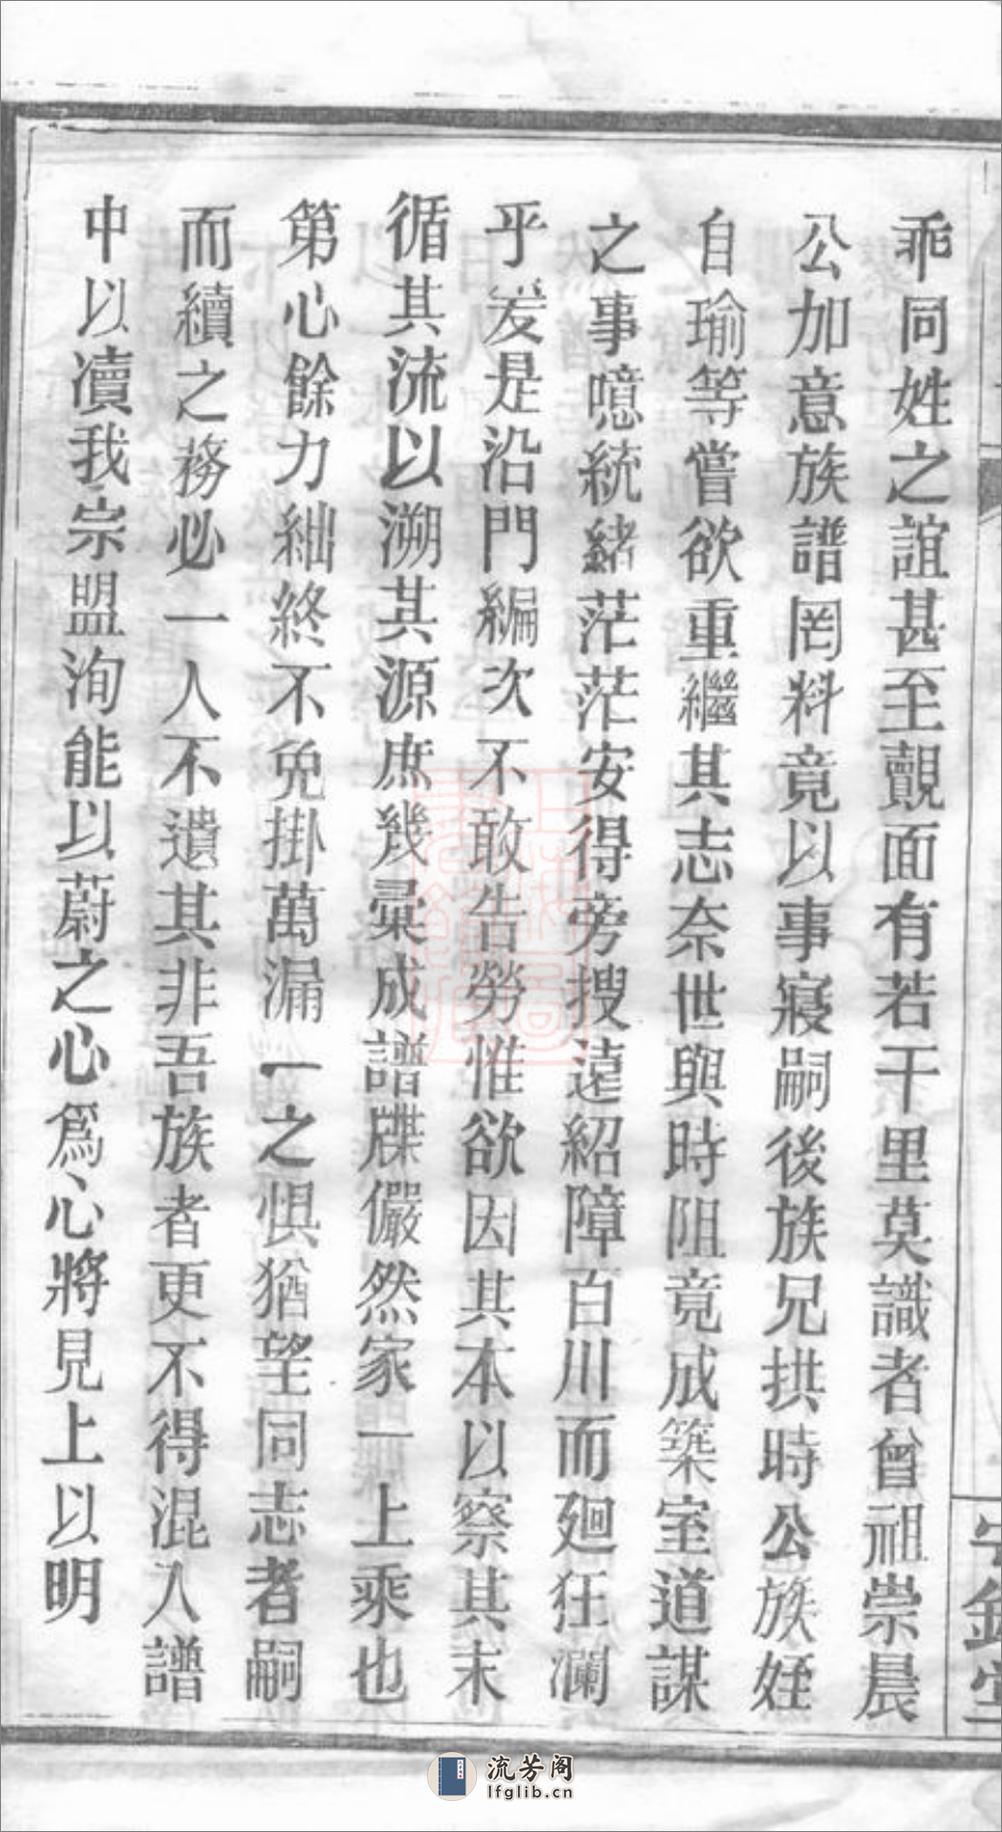 乖同姓之誼甚至覿面有若干里莫識者曾祖崇晨
公加意族譜罔料竟以事寢嗣後族兄拱時公族姪
自瑜等嘗欲重繼其志奈世與時阻竟成築室道謀
之事噫統緒茫茫安得旁搜遠紹障百川而廻狂瀾
乎爰是沿門編次不敢告勞惟欲因其本以察其末
循其流以溯其源庶幾彙成譜牒儼然家一上乘也
第心餘力絀終不免掛萬漏一之惧猶望同志者嗣
而續之務必一人不遺其非吾族者更不得混入譜
中以凟我宗盟洵能以蔚之心爲心將見上以明
流芳阁
lfglib.cn